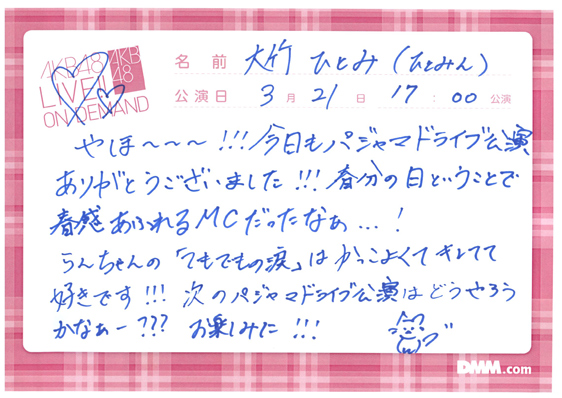 AKB48 LIVE!! ON DEMAND
AKB48
名前 大竹 ひとみ (ひとみん)
公演日 3月21日 17:00公演
やほ〜〜〜!!!今日もパジャマドライブ公演
ありがとうございました!!!春分の日ということで
春感あふれるMCだったなぁ…!
らんちゃんの「てもでもの涙」はかっこよくてキレてて
好きです!!!次のパジャマドライブ公演はどうやろう
かなぁー???お楽しみに!!!
DMM.com